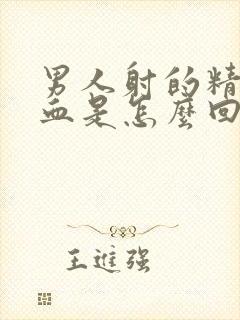 男人射的精
血是怎麼回
王進強